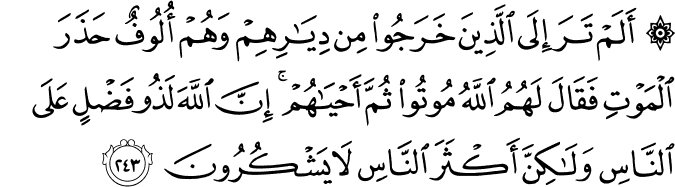 ۞ أَلَمْ تَرَ إِلَى ٱلَّذِينَ خَرَجُوا۟ مِن دِيَـٰرِهِمْ وَهُمْ أُلُوفٌ حَذَرَ
ٱلْمَوْتِ فَقَالَ لَهُمُ ٱللَّهُ مُوتُوا۟ ثُمَّ أَحْيَـٰهُمْ ۚ إِنَّ ٱللَّهَ لَذُو فَضْلٍ عَلَى
ٱلنَّاسِ وَلَـٰكِنَّ أَكْثَرَ ٱلنَّاسِ لَا يَشْكُرُونَ ٢٤٣